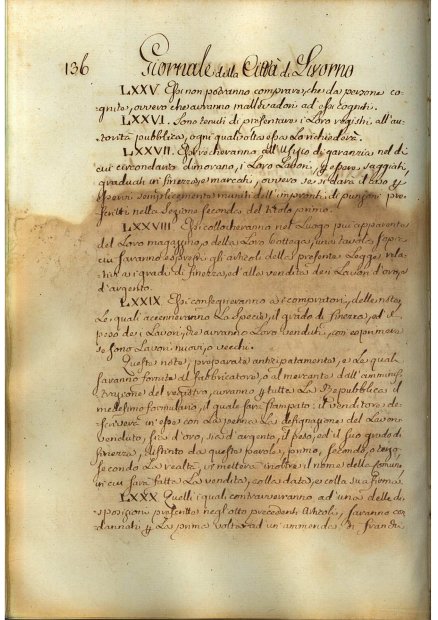 136 Giornale della Città di Livorno
LXXV. Essi non potranno comprare, che da persone co-
gnite, ovvero che avranno mallevadori ad essi cogniti.
LXXVI. Sono tenuti di presentare i Loro registri all'au-
torità pubblica, ogni qualvolta essa La richiederà.
LXXVII. all'ufficio di garanzia nel di
cui circondario dimorano, i Loro Lavori, per essere saggiati,
graduati in finezza, e marcati, ovvero se si darà il caso per
essere semplicemente muniti dell'impronti di punzoni pre-
scritte nella Sezione seconda del titolo primo.
LXXVIII. Essi collocheranno nel Luogo più apparente
del Loro magazzino, o della Loro bottega, una tavola, sopra
cui saranno espressi gli articoli della presente Legge rela-
tivi a i gradi di finezza, ed alla vendita dei Lavori d'oro, e
d'argento.
LXXIX. Essi consegneranno a i compratori, delle note,
Le quali accenneranno La Specie, il grado di finezza, ed il
peso dei Lavori, che avranno Loro venduti, con esprimere
se sono Lavori nuovi, o vecchi.
Queste note, preparate anticipatamente, e Le quali
saranno fornite al fabbricatore, o al mercante dall'ammini-
strazione del registro, avranno per tutta La Repubblica il
medesimo formulario, il quale sarà stampato; il venditore de-
scriverà in esse con La penna La designazione del Lavoro
venduto, sia d'oro, sia d'argento, il peso, ed il suo grado di
finezza, distinto da queste parole, primo, secondo, o terzo,
secondo La realtà, vi metterà inoltre il nome della Comune,
in cui sarà fatta La vendita, colla data, e colla sua firma.
LXXX. Quelli i quali contravverranno ad una delle di-
sposizioni prescritte negli otto precedenti Articoli, saranno con-
dannati per La prima volta ad un'ammenda di franchi